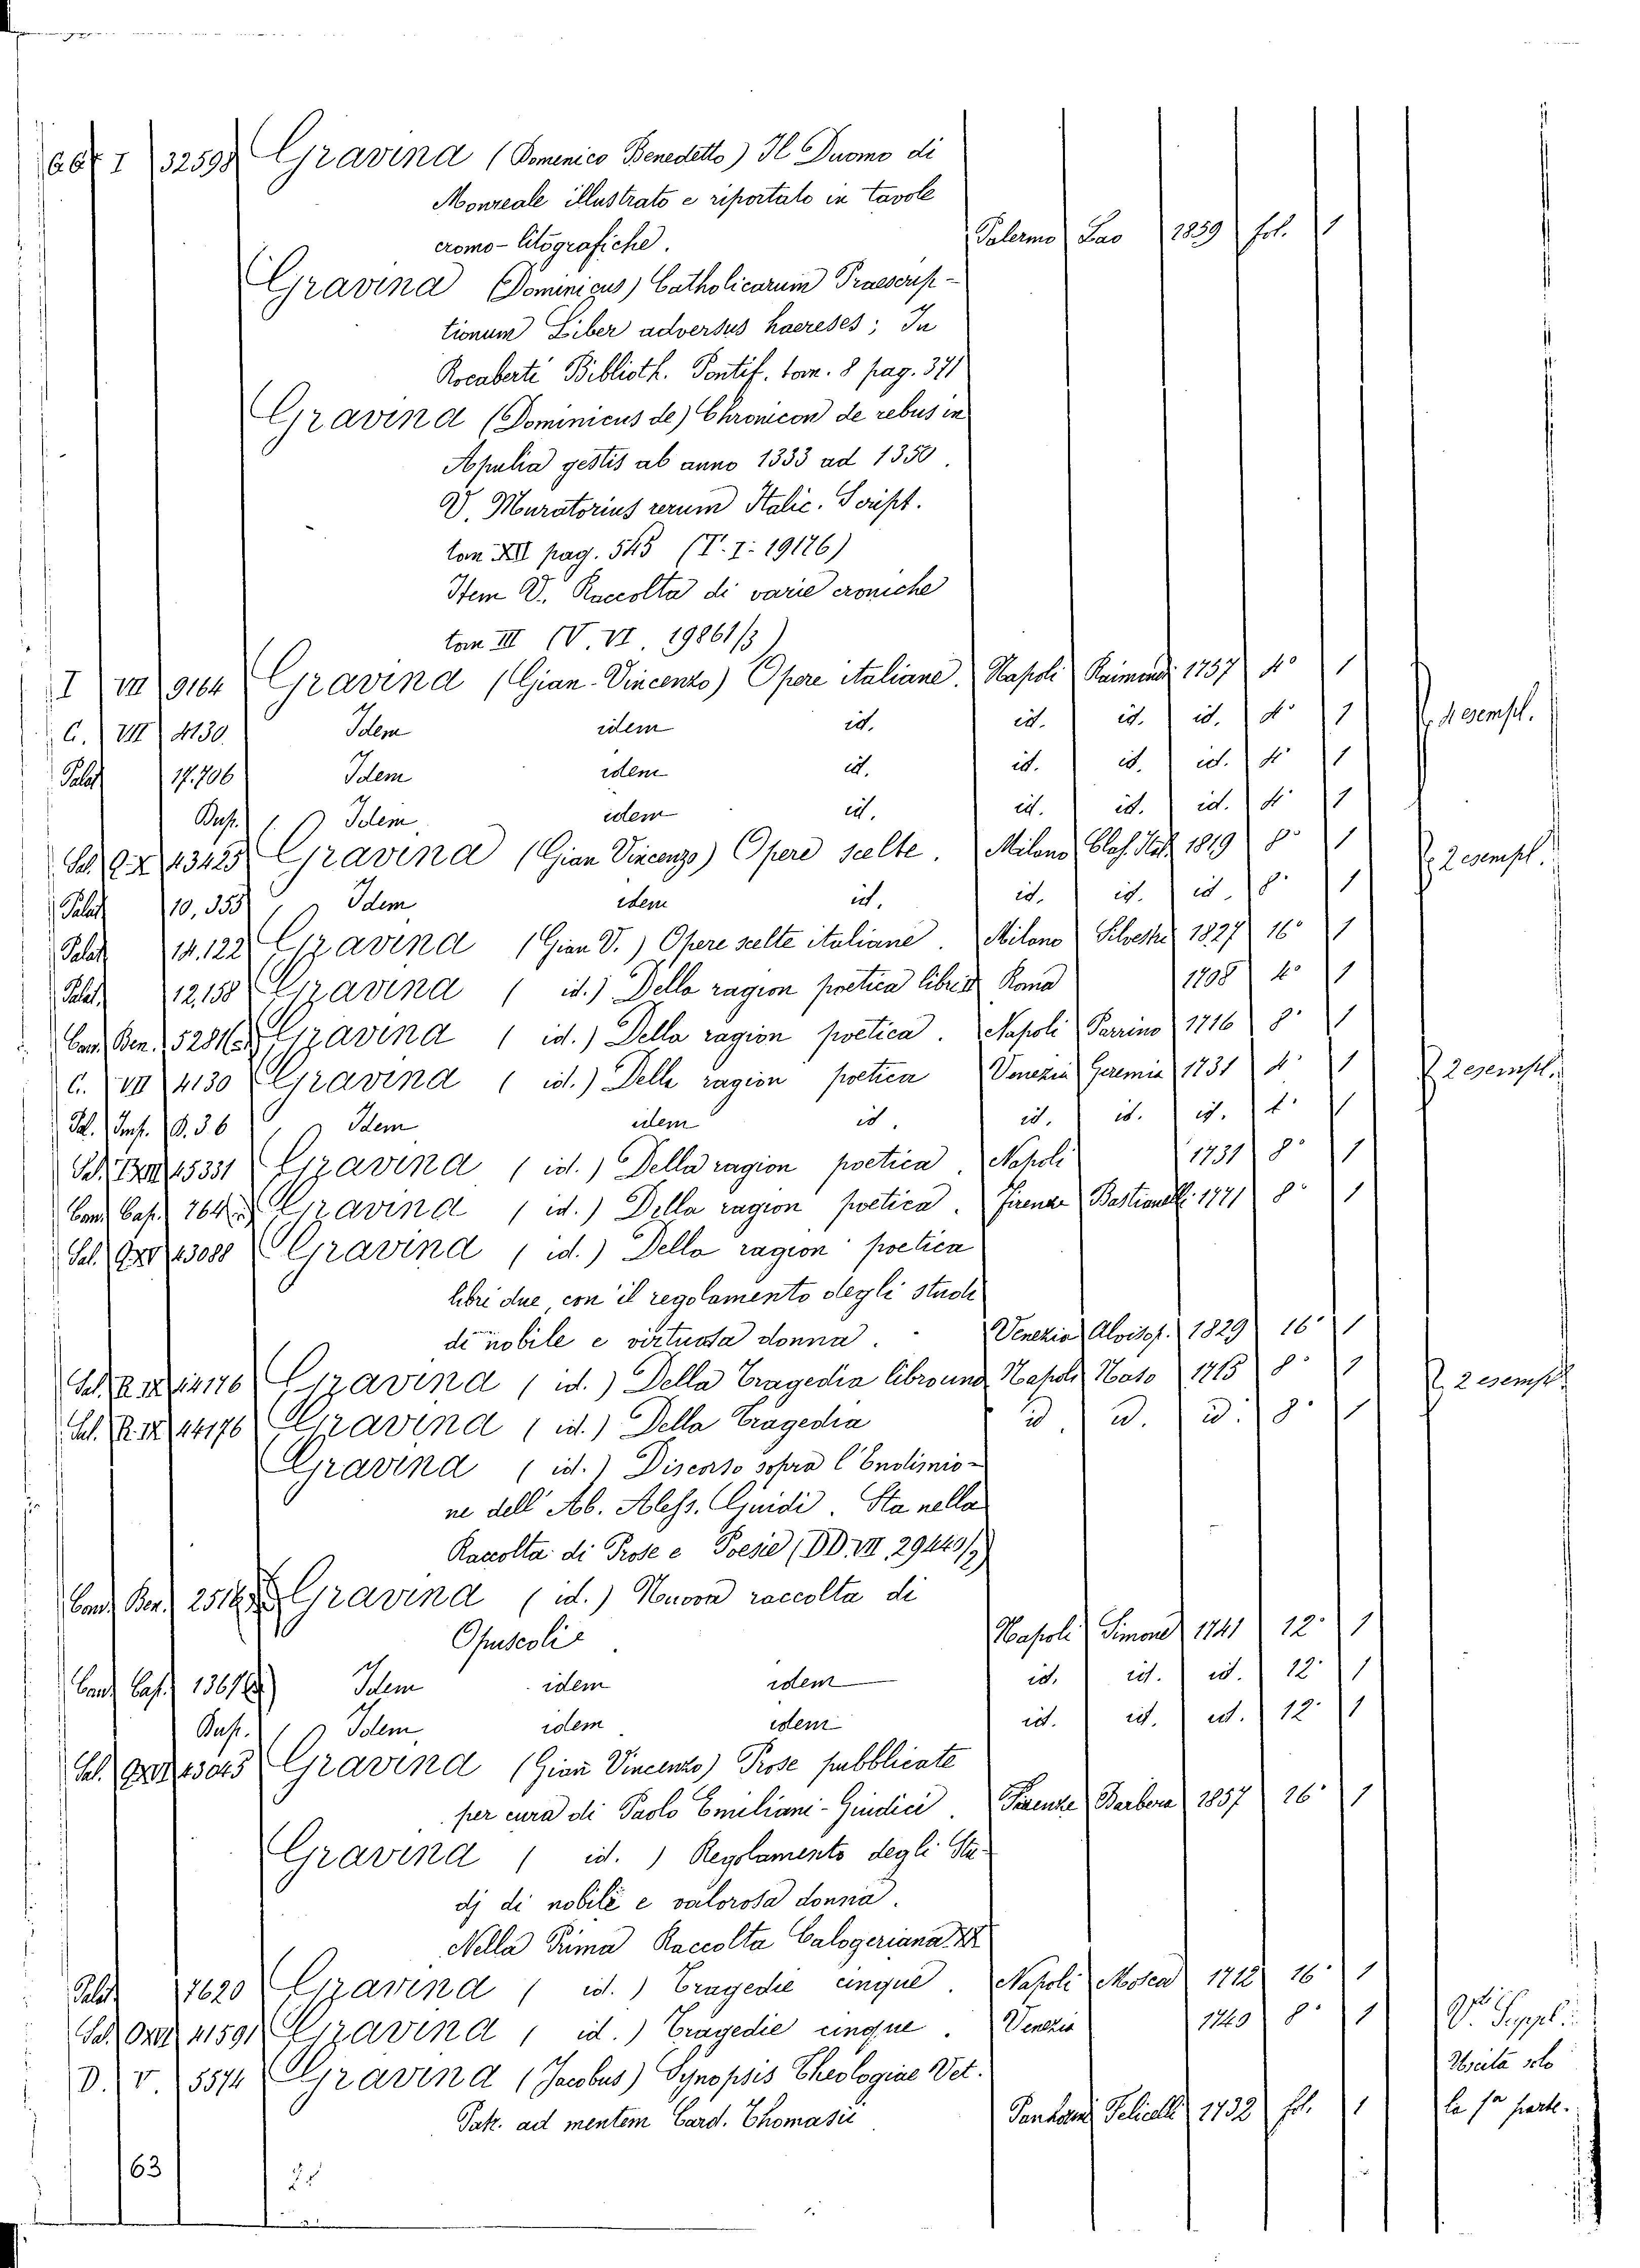 I 32598 Gravina (Domenico Benedetto) Il Duomo di
Monreale illustrato e riportato in tavole
cromo-litografiche. Palermo Lao 1859 fol. 1
Gravina (Dominicus) Catholicarum Praescrip-
tionum Liber adversus haereses; In
Rocaberti Biblioth. Pontif. tom. 8 pag. 371
Gravina (Dominicus de) Chronicon de rebus in
Apulia gestis ab anno 1333 ad 1350.
V. Muratorius rerum Italic. Script.
tom XII pag. 545 (T. I. 19176)
Item V. Raccolta di varie croniche
tom III (V. VI. 19861/3)
I VII 9164 Gravina (Gian-Vincenzo) Opere italiane. Napoli Raimondi 1757 4º 1
C. VII 4130 Idem idem id. id. id. id. 4º 1 esempl.
Palat 17.706 Idem idem id. id. id. id. 4º 1
Busp. Idem idem id. id. id. id. 4º 1
43425 Gravina (Gian Vincenzo) Opere scelte. Milano Clas. Ital. 1819 8º 1 2 esempl.
Palat 10,355 Idem idem id. id. id. id. 8º 1
Palat 14.122 Gravina (Gian V.) Opere scelte italiane. Milano Silvestri 1827 16º 1
Palat. 12,158 Gravina (id.) Della ragion poetica libri Roma 1708 4º 1
Ben. Gravina (id.) Della ragion poetica. Napoli Parrino 1716 8º 1
C. VII 4130 Gravina (id.) Della ragion poetica Venezia Geremia 1731 4º 1 2 esempl.
36 Idem idem id. id. id. id. 4º 1
45331 Gravina (id.) Della ragion poetica. Napoli 1731 8º 1
Gravina (id.) Della ragion poetica. Firenze Bastianelli 1771 8º 1
Sal. 43088 Gravina (id.) Della ragion poetica
libri due, con il regolamento degli studi
di nobile e virtuosa donna. Venezia Alvisop. 1829 16º 1
Sal. 44176 Gravina (id.) Della Tragedia libro uno Napoli Naso 1715 8º 1 2 esempl.
Sal. 44176 Gravina (id.) Della Tragedia id. id. id. 8º 1
Gravina (id.) Discorso sopra l'Endimio-
ne dell'Ab. Aless. Guidi. Sta nella
Raccolta di Prose e Poesie
Gravina (id.) Nuova raccolta di
Opuscoli. Napoli Simone 1741 12º 1
Idem idem idem id. id. id. 12º 1
Busp. Idem idem idem id. id. id. 12º 1
Sal. Gravina (Gian Vincenzo) Prose pubblicate
per cura di Paolo Emiliani-Giudici. Firenze Barbera 1857 16º 1
Gravina (id.) Regolamento degli Stu-
dj di nobile e valorosa donna.
Nella Prima Raccolta Calogeriana
Palat 7620 Gravina (id.) Tragedie cinque. Napoli Mosca 1712 16º 1
Sal. 41591 Gravina (id.) Tragedie cinque. Venezia 1740 8º 1 V. Suppl.
D. V. 5574 Gravina (Jacobus) Synopsis Theologiae Vet.
Patr. ad mentem Card. Thomasii 1732 fol. 1 Uscita solo
la 1ª parte.
63